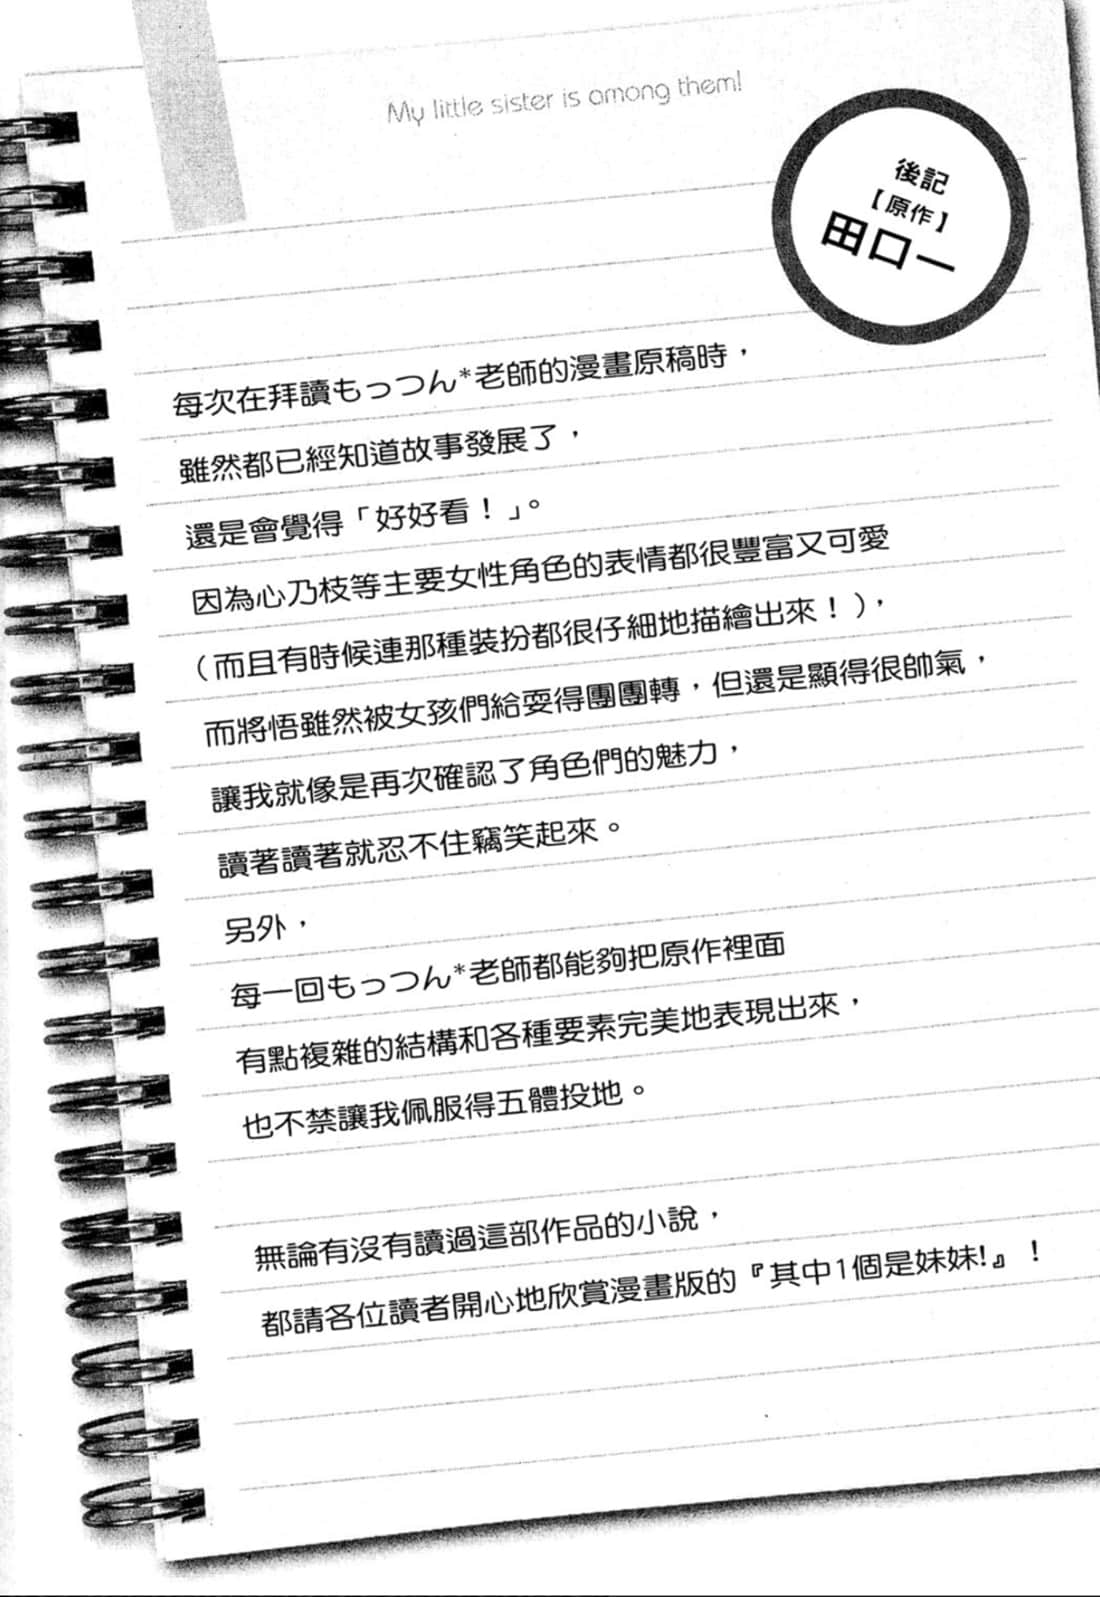 My little sister is among them!
後記
【原作】
田口一
每次在拜讀もっつん*老師的漫畫原稿時，
雖然都已經知道故事發展了，
還是會覺得「好好看！」。
因為心乃枝等主要女性角色的表情都很豐富又可愛
（而且有時候連那種裝扮都很仔細地描繪出來！），
而將悟雖然被女孩們給耍得團團轉，但還是顯得很帥氣，
讓我就像是再次確認了角色們的魅力，
讀著讀著就忍不住竊笑起來。
另外，
每一回もっつん*老師都能夠把原作裡面
有點複雜的結構和各種要素完美地表現出來，
也不禁讓我佩服得五體投地。
無論有沒有讀過這部作品的小說，
都請各位讀者開心地欣賞漫畫版的『其中1個是妹妹!』！